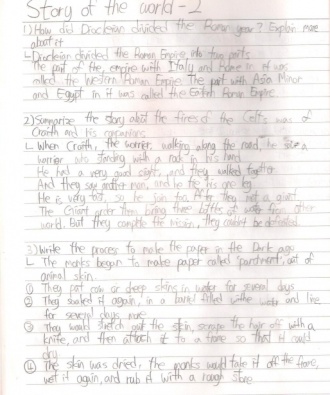 Story of the world - 2
1) How did Diocletian divided the Roman
about it
Diocletian divided the Roman Empire into two parts.
The part of the empire with Italy and Rome in it was
called the Western Roman Empire. The part with Asia Minor
and Egypt in it was called the Eastern Roman Empire
2) Summarize the story about the of the Celts was of
and his companions
When the walking along the road, he
warrior who standing with a rock in his hand
He had a very good sight, and they walked together
And they say another man, and he tie his one leg
He is very so he join too. After they met a giant
The Giant order them bring three bottles of water from other
world. But they complete the mission, they couldn't be defeated.
3) Write the process to make the paper in the Dark age
The monks began to make paper called "parchment", out of
animal skin
① They put cow or skins in water for several days
② They soaked it again, in a barrel filled with water and lime
for several days more
③ They would stretch out the skin, scrape the hair off with a
knife, and then attach it to a frame so that it could
dry
④ The skin was dried, the monks would take it off the frame,
wet it again, and rub it with a rough stone